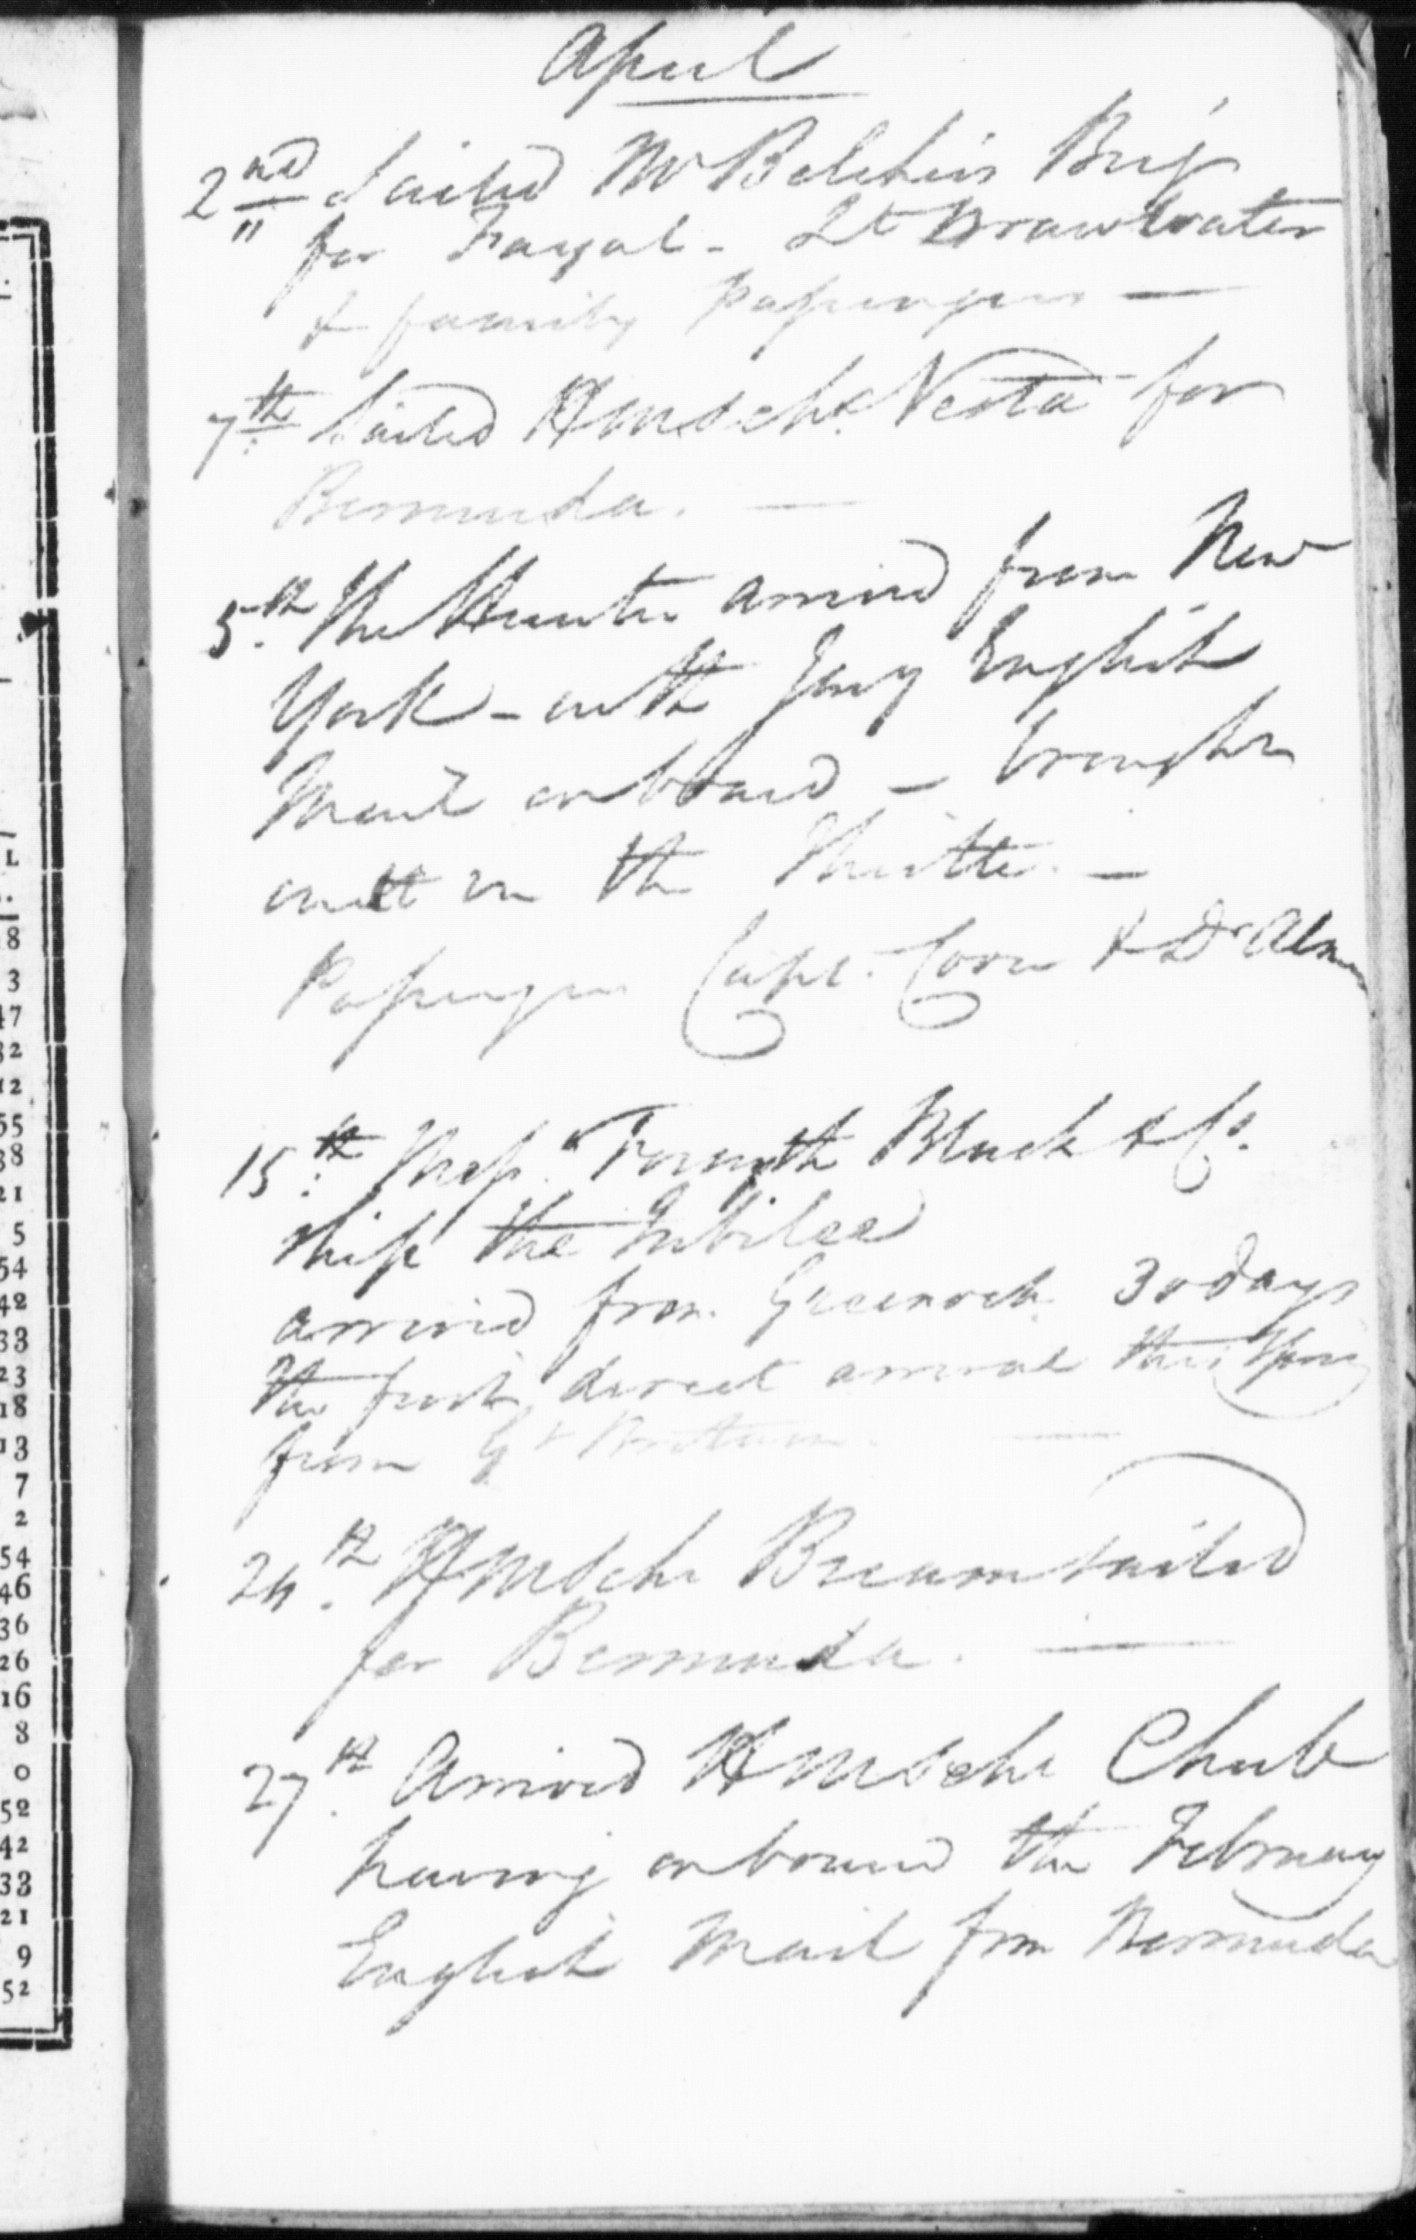 April
2nd Sailed Mr Belcher's Brig
for Fayal - Lt Drawwater
& family Passengers —
7th Sailed HM Schr Vesta for
Bermuda. —
5th The Hunter arrived from New
York - with Jany English
Mail on board - brought
out in the Thistle. —
Passengers Capt. & Dr
15th Messrs Forsyth Black & Co.
ship the Jubilee
arrived from Greenock 30 days
the first direct arrival this Spring
from Gt Britain. —
24th HM Schr Bream sailed
for Bermuda. —
27th Arrived HM Schr Chub
having on board the February
English Mail from Bermuda
L
8
3
47
32
12
55
38
21
5
54
42
33
23
18
13
7
2
54
46
36
26
16
8
0
52
42
33
21
9
52